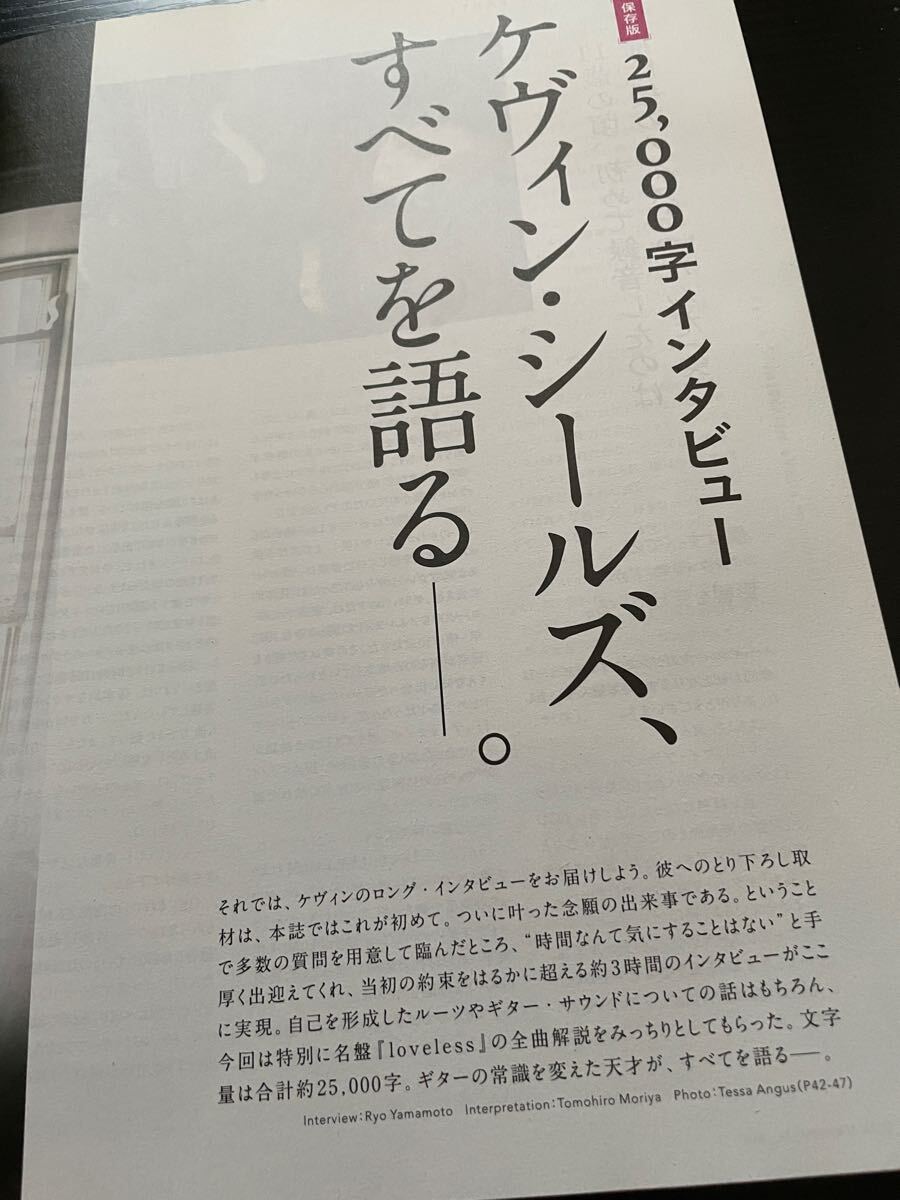 保存版
25,000字インタビュー
ケヴィン・シールズ、
すべてを語る――。
それでは、ケヴィンのロング・インタビューをお届けしよう。彼へのとり下ろし取
材は、本誌ではこれが初めて。ついに叶った念願の出来事である。ということ
で多数の質問を用意して臨んだところ、“時間なんて気にすることはない”と手
厚く出迎えてくれ、当初の約束をはるかに超える約3時間のインタビューがここ
に実現。自己を形成したルーツやギター・サウンドについての話はもちろん、
今回は特別に名盤『loveless』の全曲解説をみっちりとしてもらった。文字
量は合計約25,000字。ギターの常識を変えた天才が、すべてを語る――。
Interview:Ryo Yamamoto Interpretation:Tomohiro Moriya Photo:Tessa Angus(P42-47)